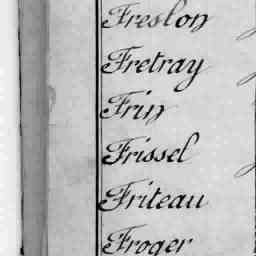 Freslon
Fretray
Frin
Frissel
Friteau
Froger